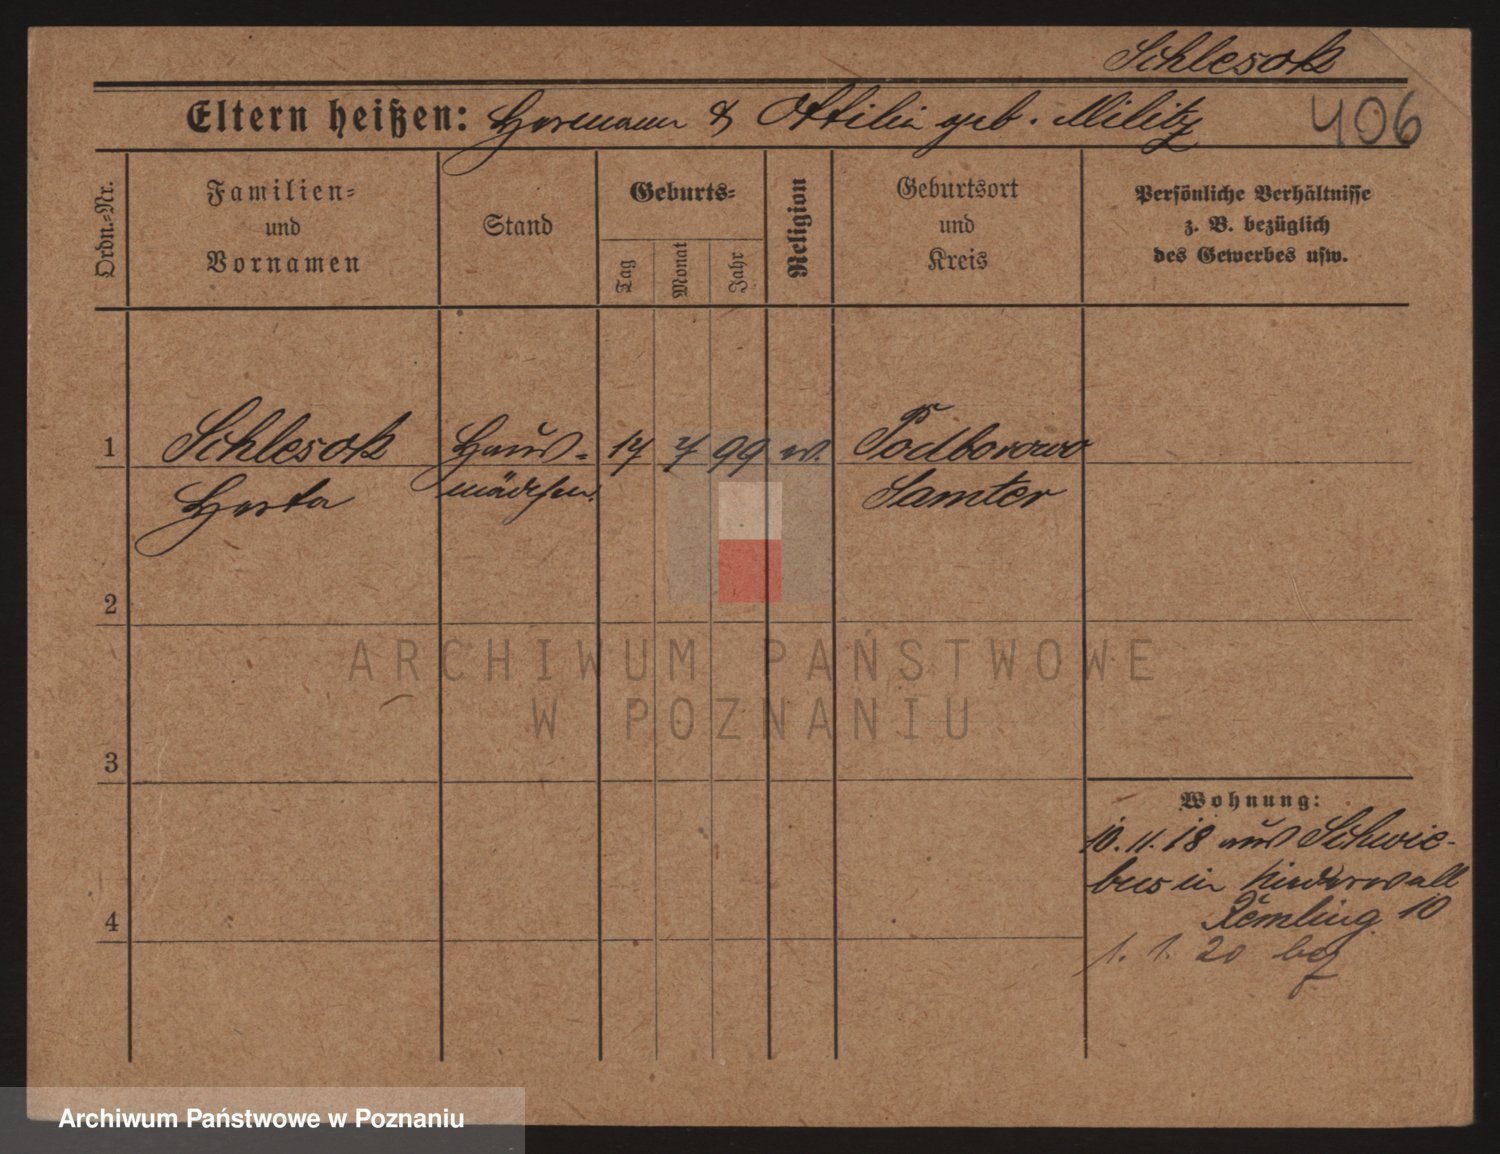 Schlesok
Eltern heißen: Hermann & Ottilie geb. Militz
406
Ordn.-Nr.
Familien-
und
Vornamen
Stand
Geburts-
Tag
Monat
Jahr
Religion
Geburtsort
und
Kreis
Persönliche Verhältnisse
z. B. bezüglich
des Gewerbes usw.
1 Schlesok Haus- 17 7 99 ev. Podborowo
Herta mädchen. Samter
2
3
4
Wohnung:
10. 11. 18 aus Schwie-
bus in Niederwall
10
1. 1. 20
ARCHIWUM PAŃSTWOWE
W POZNANIU
Archiwum Państwowe w Poznaniu